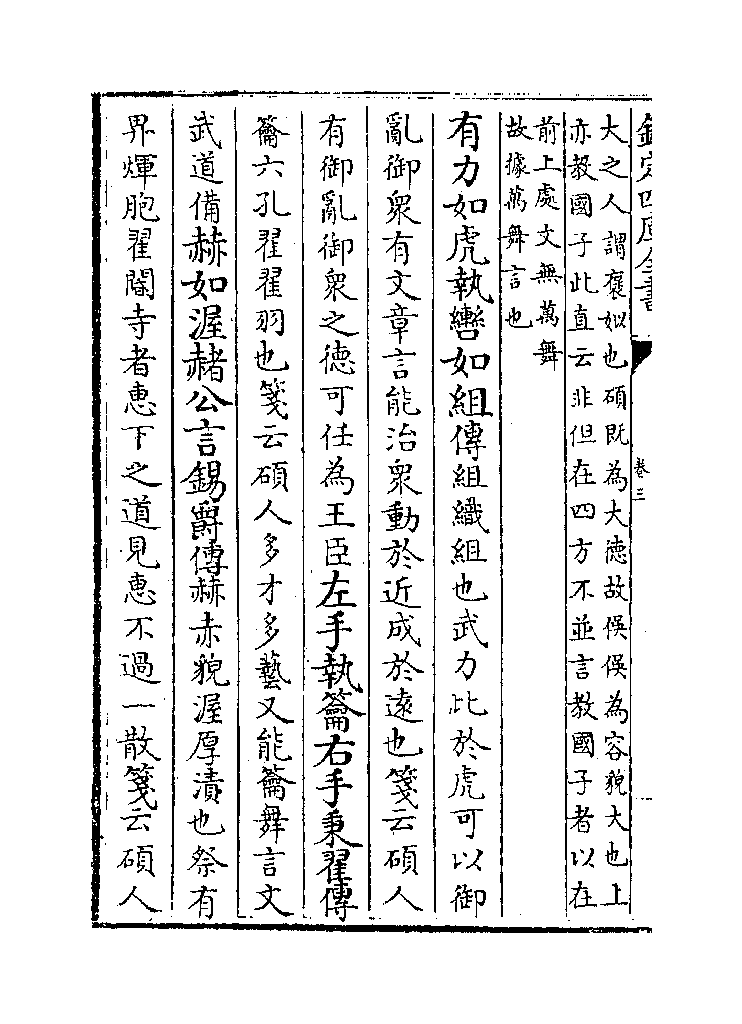 欽定四庫全書
卷三
大之人謂褒姒也碩既為大德故俁俁為容貌大也上
亦教國子此直云非但在四方不並言教國子者以在
前上處文無萬舞
故據萬舞言也
有力如虎執轡如組傳組織組也武力比於虎可以御
亂御衆有文章言能治衆動於近成於遠也箋云碩人
有御亂御衆之德可任為王臣左手執籥右手秉翟傳
籥六孔翟翟羽也箋云碩人多才多藝又能籥舞言文
武道備赫如渥赭公言錫爵傳赫赤貌渥厚漬也祭有
畀煇胞翟閽寺者惠下之道見惠不過一散箋云碩人